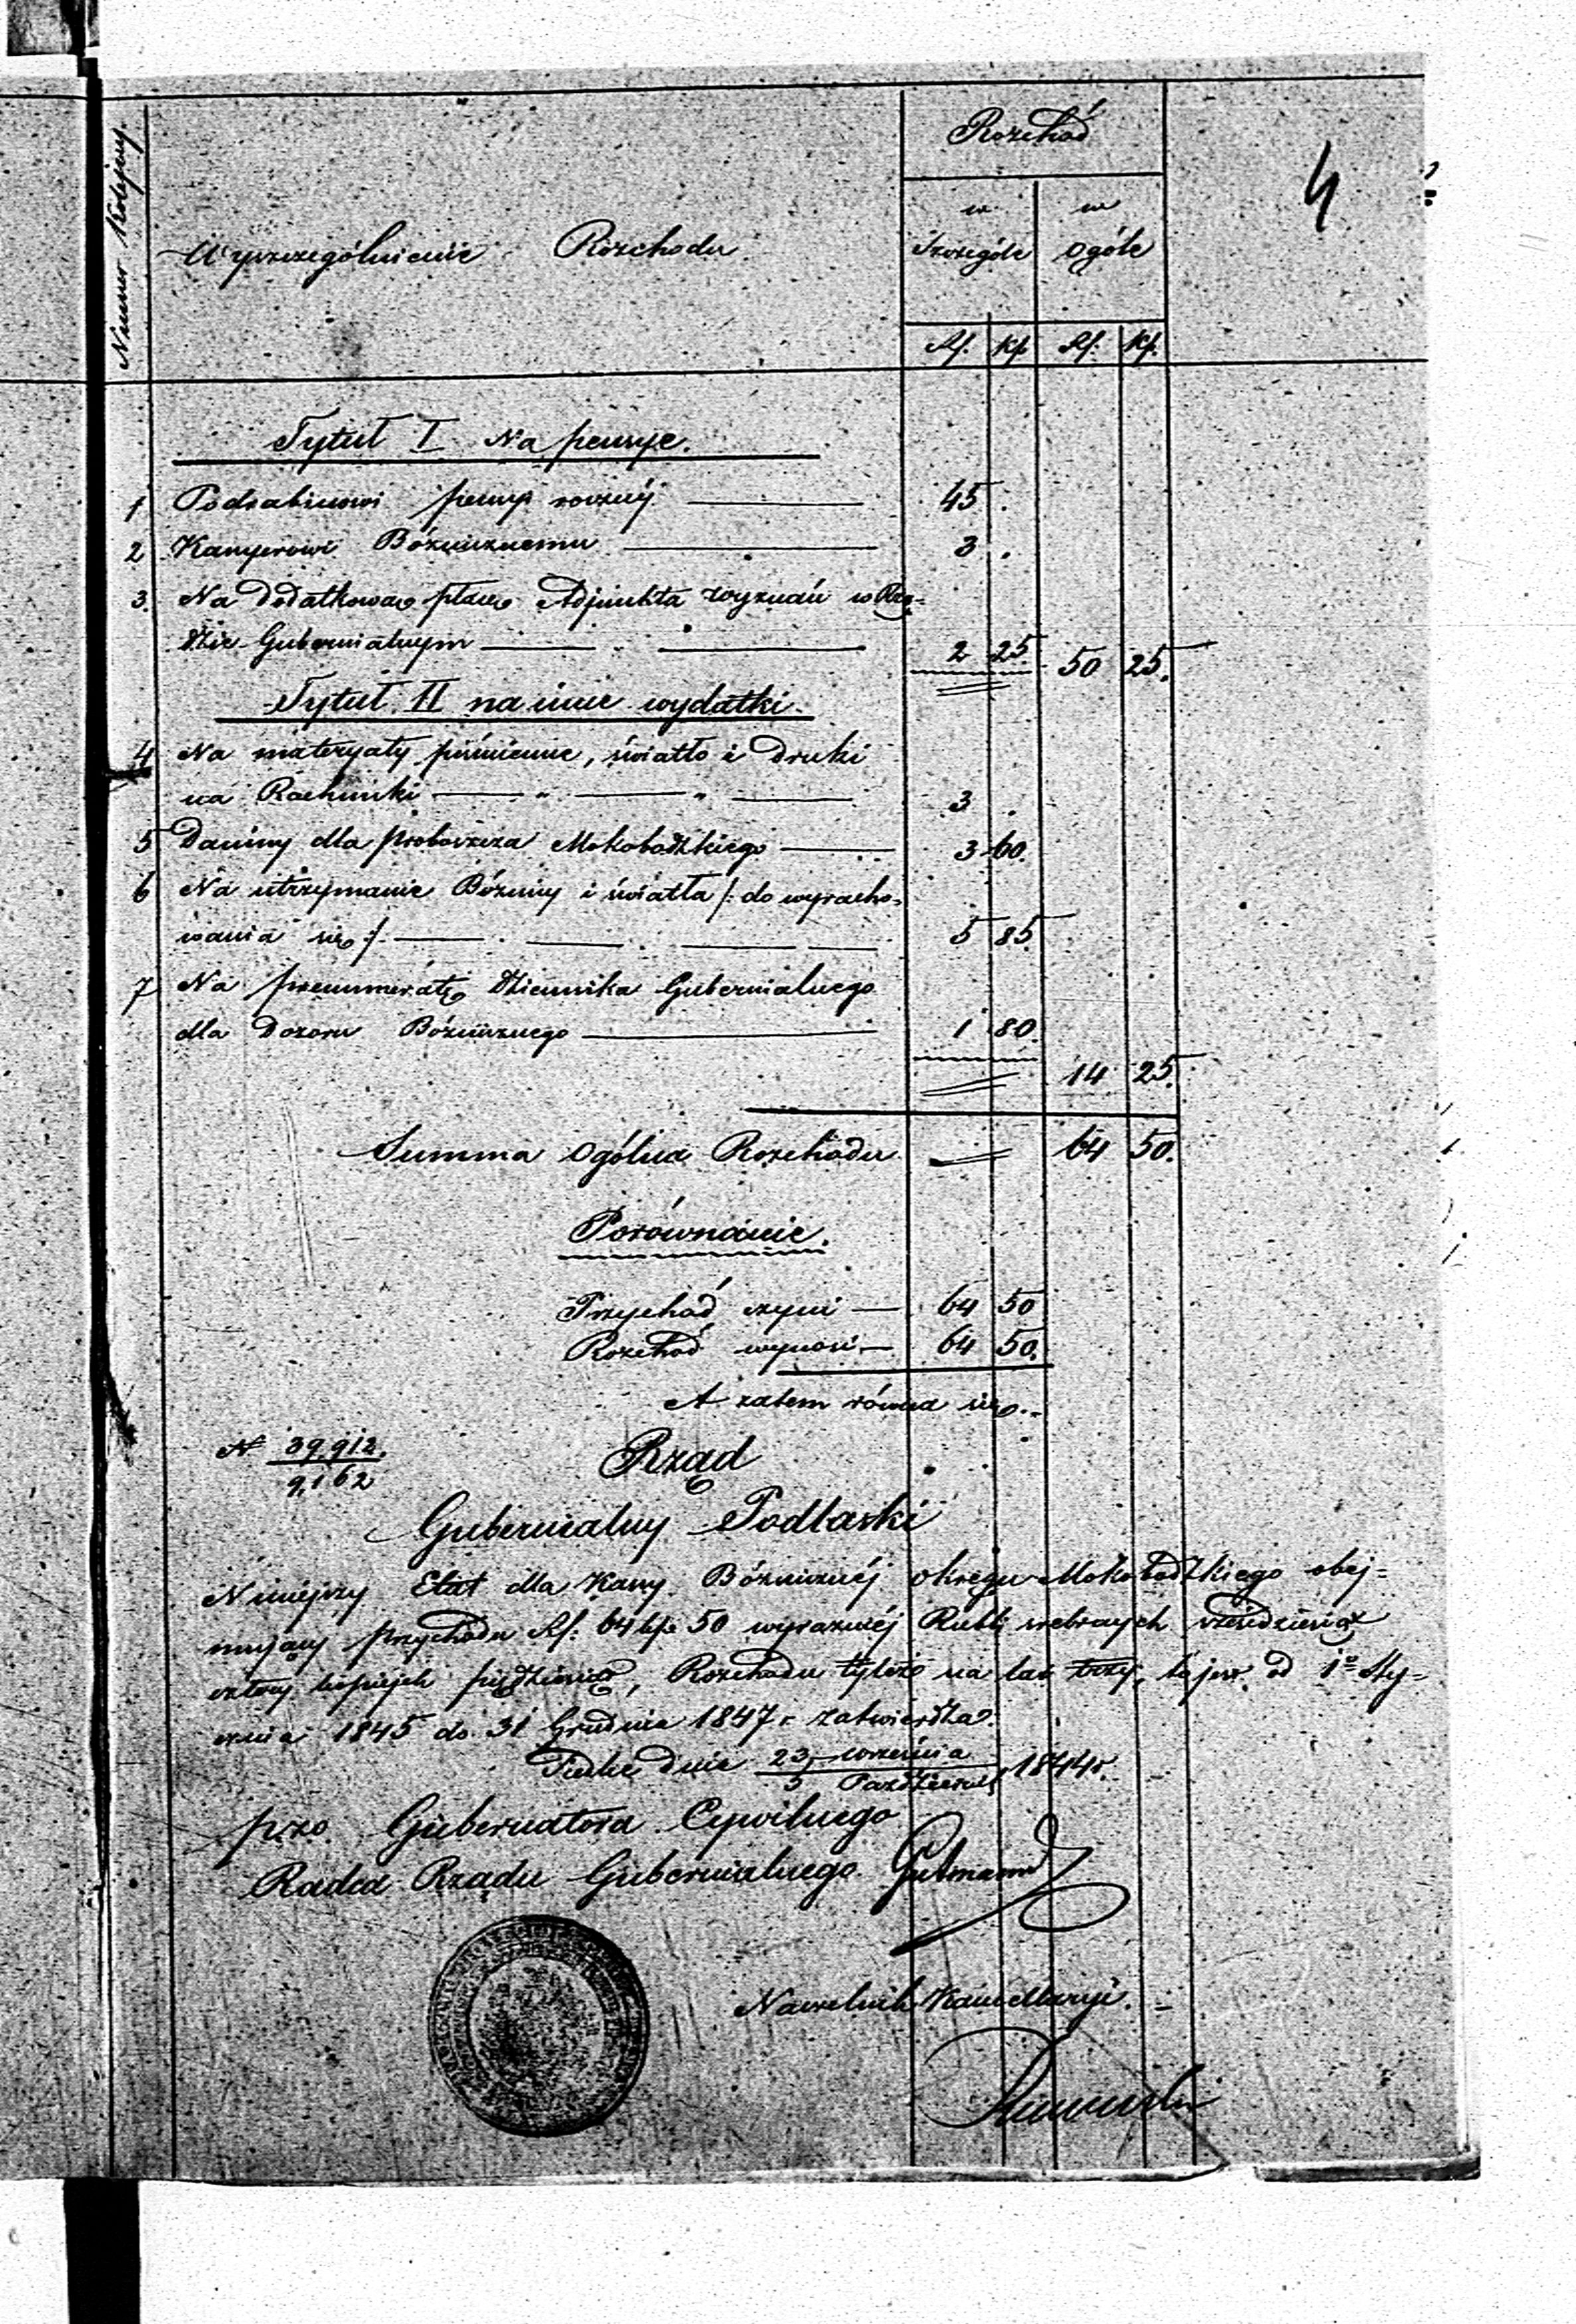 4
Numer Kolejny.
Wyszczególnienie Rozchodu.
Rozchód
w Szczególe
w Ogóle
Rs. Kp Rs. Kp.
Tytuł I Na pensye.
1 Podrabinowi pensyi roczney 45 .
2 Kassyerowi Bóżnicznemu 3 .
3. Na dodatkową płacę Adjunkta wyznań w Rzą-
dzie Gubernialnym 2 25 50 25.
Tytuł II na inne wydatki.
4 Na materyały piśmienne, światło i druki
na Rachunki " " 3 .
5 Daniny dla proboszcza Mokobodzkiego 3 60.
6 Na utrzymanie Bóżnicy i światła /: do wyracho-
wania się :/. 5 85.
7 Na prenumeratę Dziennika Gubernialnego
dla Dozoru Bóżnicznego 1 80.
14 25.
Summa Ogólna Rozchodu 64 50.
Porównanie.
Przychód czyni — 64 50
Rozchód wynosi — 64 50.
A zatem równa się.
N 39.912.
9,162
Rząd
Gubernialny Podlaski
Niniejszy Etat dla Kassy Bóżnicznéj okręgu Mokobodzkiego obej-
mujący przychodu Rs: 64 kp. 50 wyraźniéj Rubli srebrnych sześdziesiąt
cztery kopiejek piędziesiąt, Rozchodu tyleż na lat trzy, to jest od 1º Sty-
cznia 1845 do 31 Grudnia 1847 r. zatwierdza.
Siedlce dnia 23 września
5 Października 1844 r.
p.zo. Gubernatora Cywilnego
Radca Rządu Gubernialnego Gutmann
Naczelnik Kancellaryi.